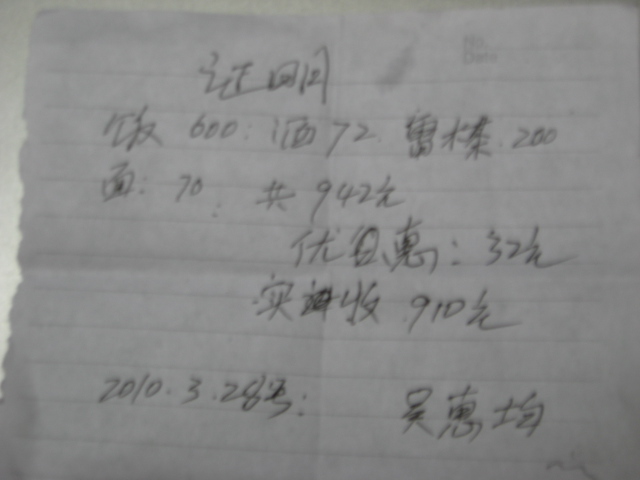 No.
Date
证明
饭 600: 酒 72. 雷楱. 200
面: 70: 共 942元
优惠: 32元
实收 910元
2010.3.28号: 吴惠均